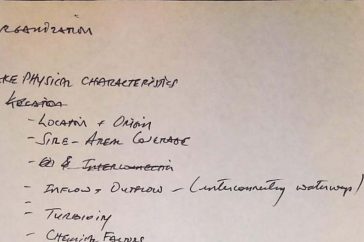 RGANIZATION
KE PHYSICAL CHARACTERISTICS
Location
- LOCATION + ORIGIN
- SIZE - AREAL COVERAGE
- & INTERCONNECTION
- INFLOW + OUTFLOW - (interconnecting waterways)
-
- TURBIDITY
- CHEMICAL FACTORS